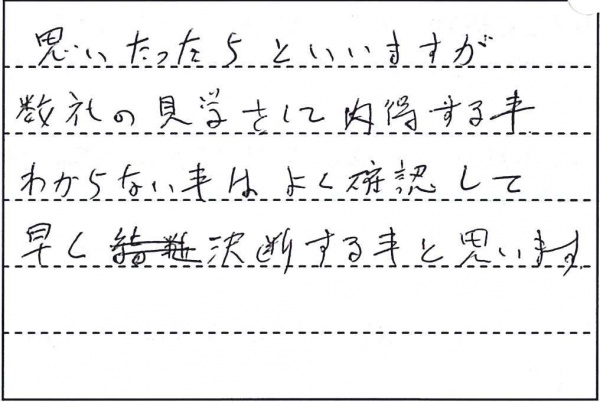 思いたったらといいますが
数社の見学さして内得する事
わからない事は よく確認して
早く決断する事と思います